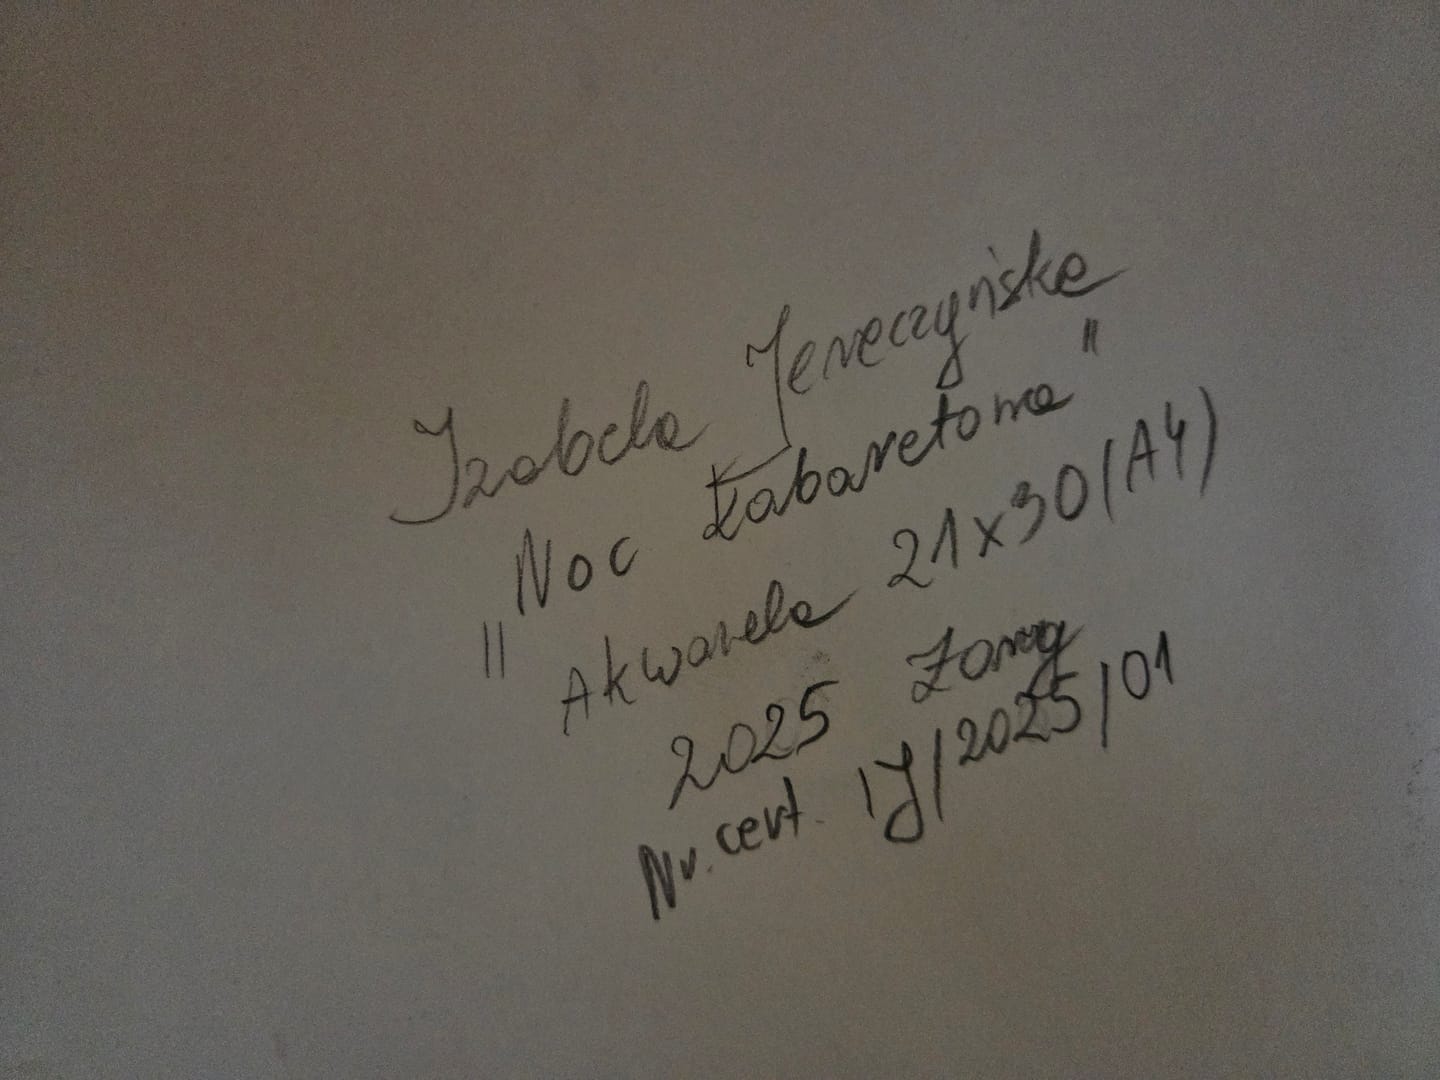 Izabela Jereczyńska
"Noc kabaretowa"
Akwarela 21x30 (A4)
2025 Żary
Nr. cert. IJ/2025/01